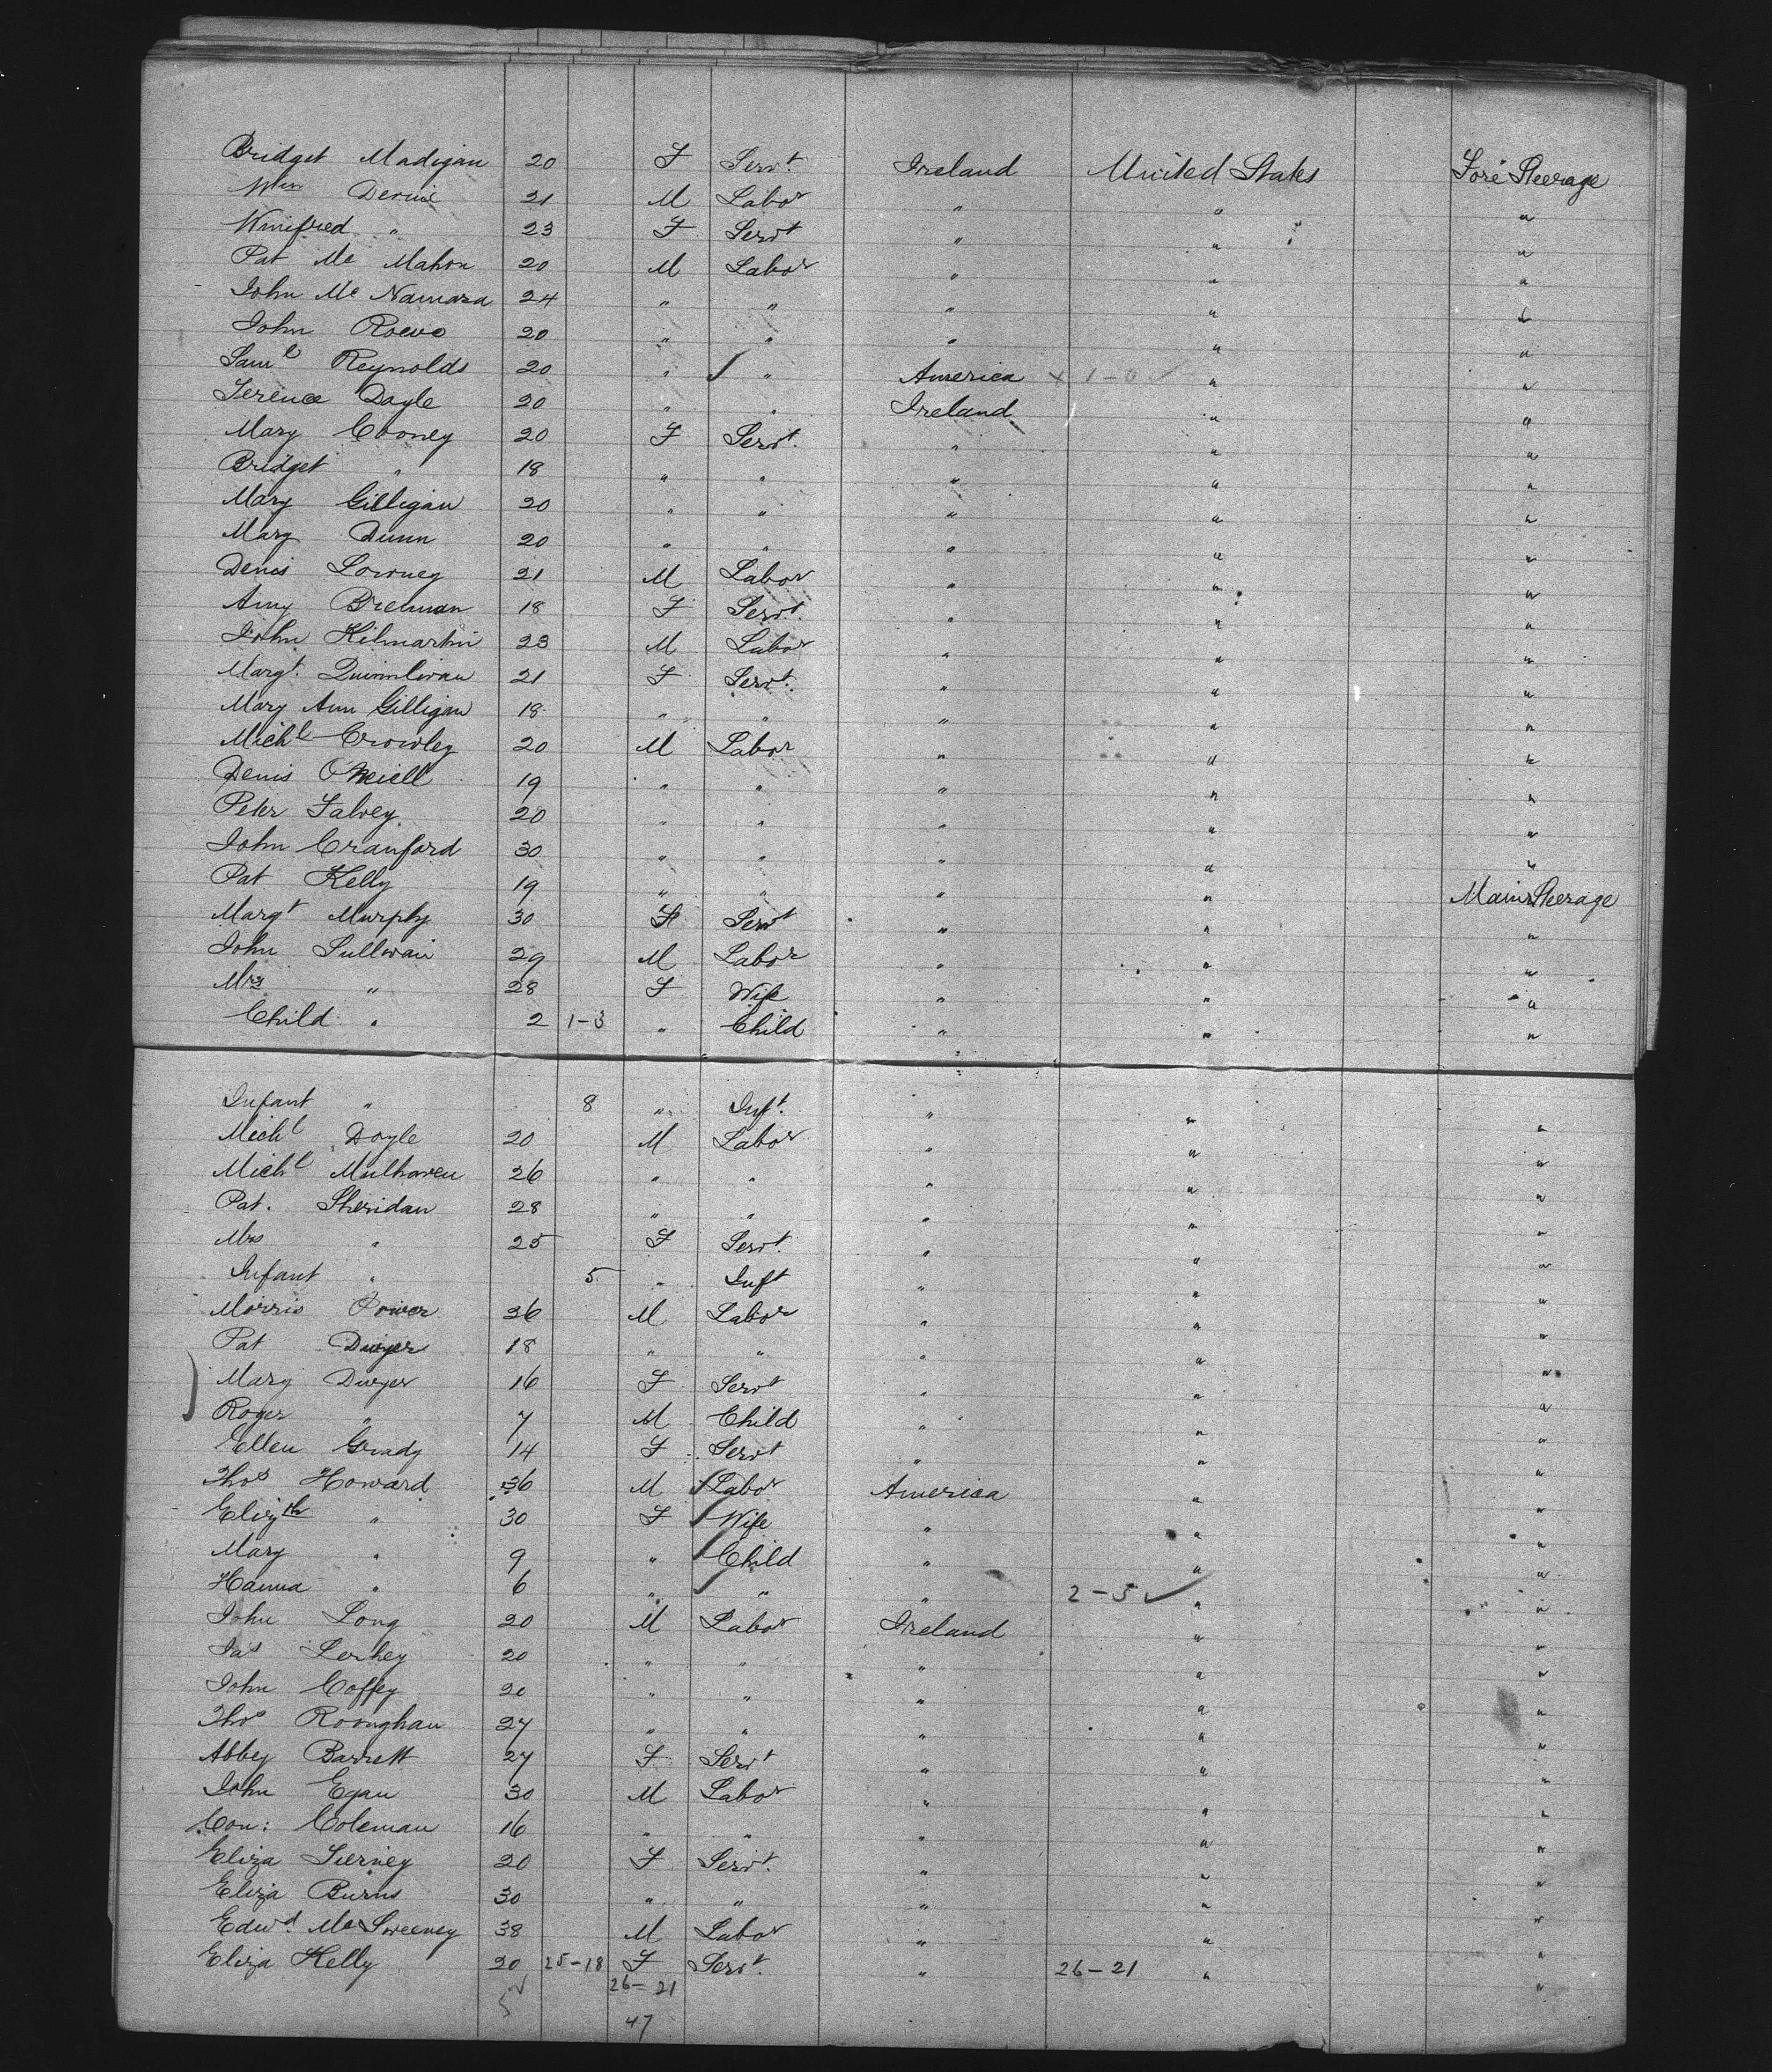 Bridget Madigan 20 F Servt. Ireland United States Fore Steerage
Wm Devine 21 M Labor " " "
Winifred " 23 F Servt " " "
Pat Mc Mahon 20 M Labor " " "
John Mc Namara 24 " " " " "
John 20 " " " " "
Saml Reynolds 20 " / " America x 1-0 ✓ " "
Terence Doyle 20 " " Ireland " "
Mary Cooney 20 F Servt. " " "
Bridget " 18 " " " " "
Mary Gilligan 20 " " " " "
Mary Dunn 20 " " " " "
Denis Lowney 21 M Labor " " "
Amy Brennan 18 F Servt. " " "
John Kilmartin 23 M Labor " " "
Margt. Quinnlivan 21 F Servt. " " "
Mary Ann Gilligan 18 " " " " "
Michl Crowley 20 M Labor " " "
Denis O'Neill 19 " " " " "
Peter Falvey 20 " " " " "
John Cranford 30 " " " " "
Pat Kelly 19 " " " " Main Steerage
Margt Murphy 30 F Servt " " "
John Sullivan 29 M Labor " " "
Mrs " 28 F Wife " " "
Child " 2 1-3 " Child " " "
Infant " 8 " Inft. " " "
Michl Doyle 20 M Labor " " "
Michl Mulhaven 26 " " " " "
Pat. Sheridan 28 " " " " "
Mrs " 25 F Servt. " " "
Infant " 5 " Inft " " "
Morris Power 26 M Labor " " "
Pat Dwyer 18 " " " " "
Mary Dwyer 16 F Servt " " "
Roger " 7 M Child " " "
Ellen Grady 14 F Servt " " "
Thos Howard 36 M / Labor America " "
Elizth " 30 F / Wife " " "
Mary " 9 " / Child " " "
Hanna " 6 " / " " 2-5 ✓ " "
John Long 20 M Labor Ireland " "
Jas 20 " " " " "
John Coffey 20 " " " " "
Thos Roonghan 27 " " " " "
Abbey Barrett 27 F Servt " " "
John Egan 30 M Labor " " "
Con: Coleman 16 " " " " "
Eliza Tierney 20 F Servt. " " "
Eliza Burns 30 " " " " "
Edwd. McSweeney 38 M Labor " " "
Eliza Kelly 20 25-18 F Servt. " 26-21 " "
26-21
5
47